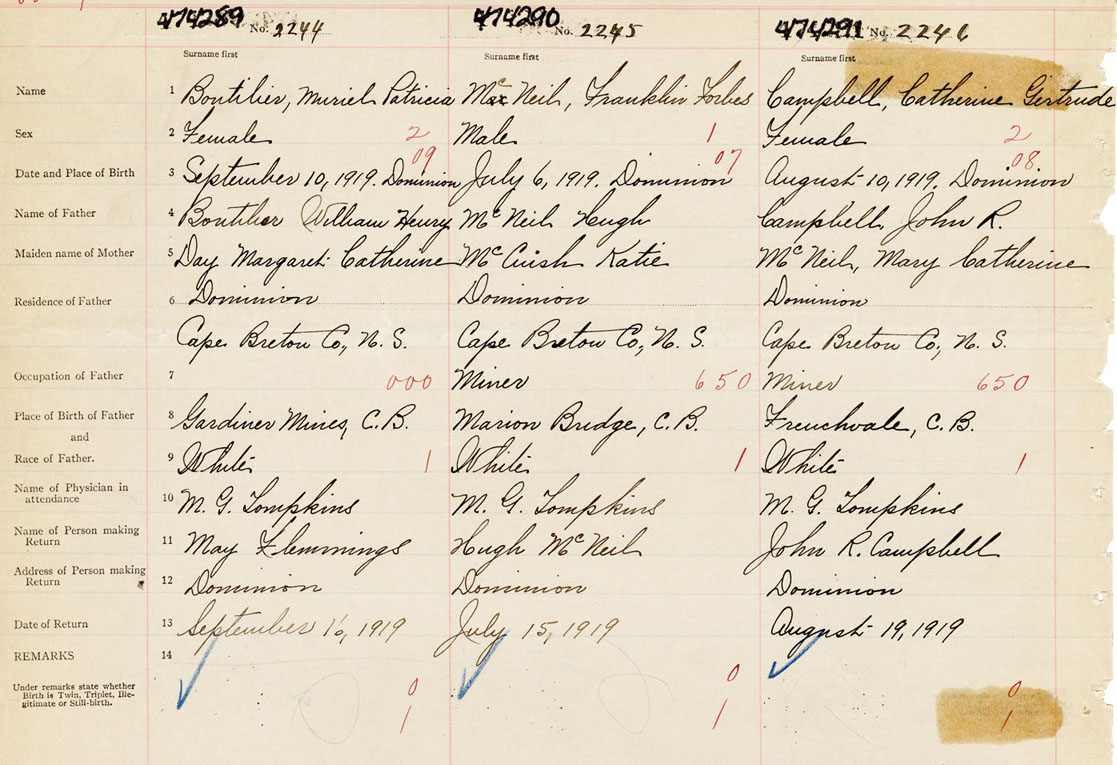 474289 474290 474291
No. 2244 No. 2245 No. 2246
Surname first Surname first Surname first
Name 1 Boutilier, Muriel Patricia McNeil, Franklin Forbes Campbell, Catherine Gertrude
Sex 2 Female 2 Male 1 Female 2
09 07 08
Date and Place of Birth 3 September 10, 1919. Dominion July 6, 1919. Dominion August 10, 1919. Dominion
Name of Father 4 Boutilier William Henry McNeil Hugh Campbell, John R.
Maiden name of Mother 5 Day Margaret Catherine McCuish Katie McNeil, Mary Catherine
Residence of Father 6 Dominion Dominion Dominion
Cape Breton Co., N. S. Cape Breton Co., N. S. Cape Breton Co., N. S.
Occupation of Father 7 000 Miner 650 Miner 650
Place of Birth of Father 8 Gardiner Mines, C.B. Marion Bridge, C.B. Frenchvale, C.B.
and
Race of Father. 9 White 1 White 1 White 1
Name of Physician in
attendance 10 M. G. Tompkins M. G. Tompkins M. G. Tompkins
Name of Person making
Return 11 May Flemmings Hugh McNeil John R. Campbell
Address of Person making
Return 12 Dominion Dominion Dominion
Date of Return 13 September 16, 1919 July 15, 1919 August 19, 1919
REMARKS 14
Under remarks state whether
Birth is Twin, Triplet, Ille-
gitimate or Still-birth.
0 0 0
1 1 1